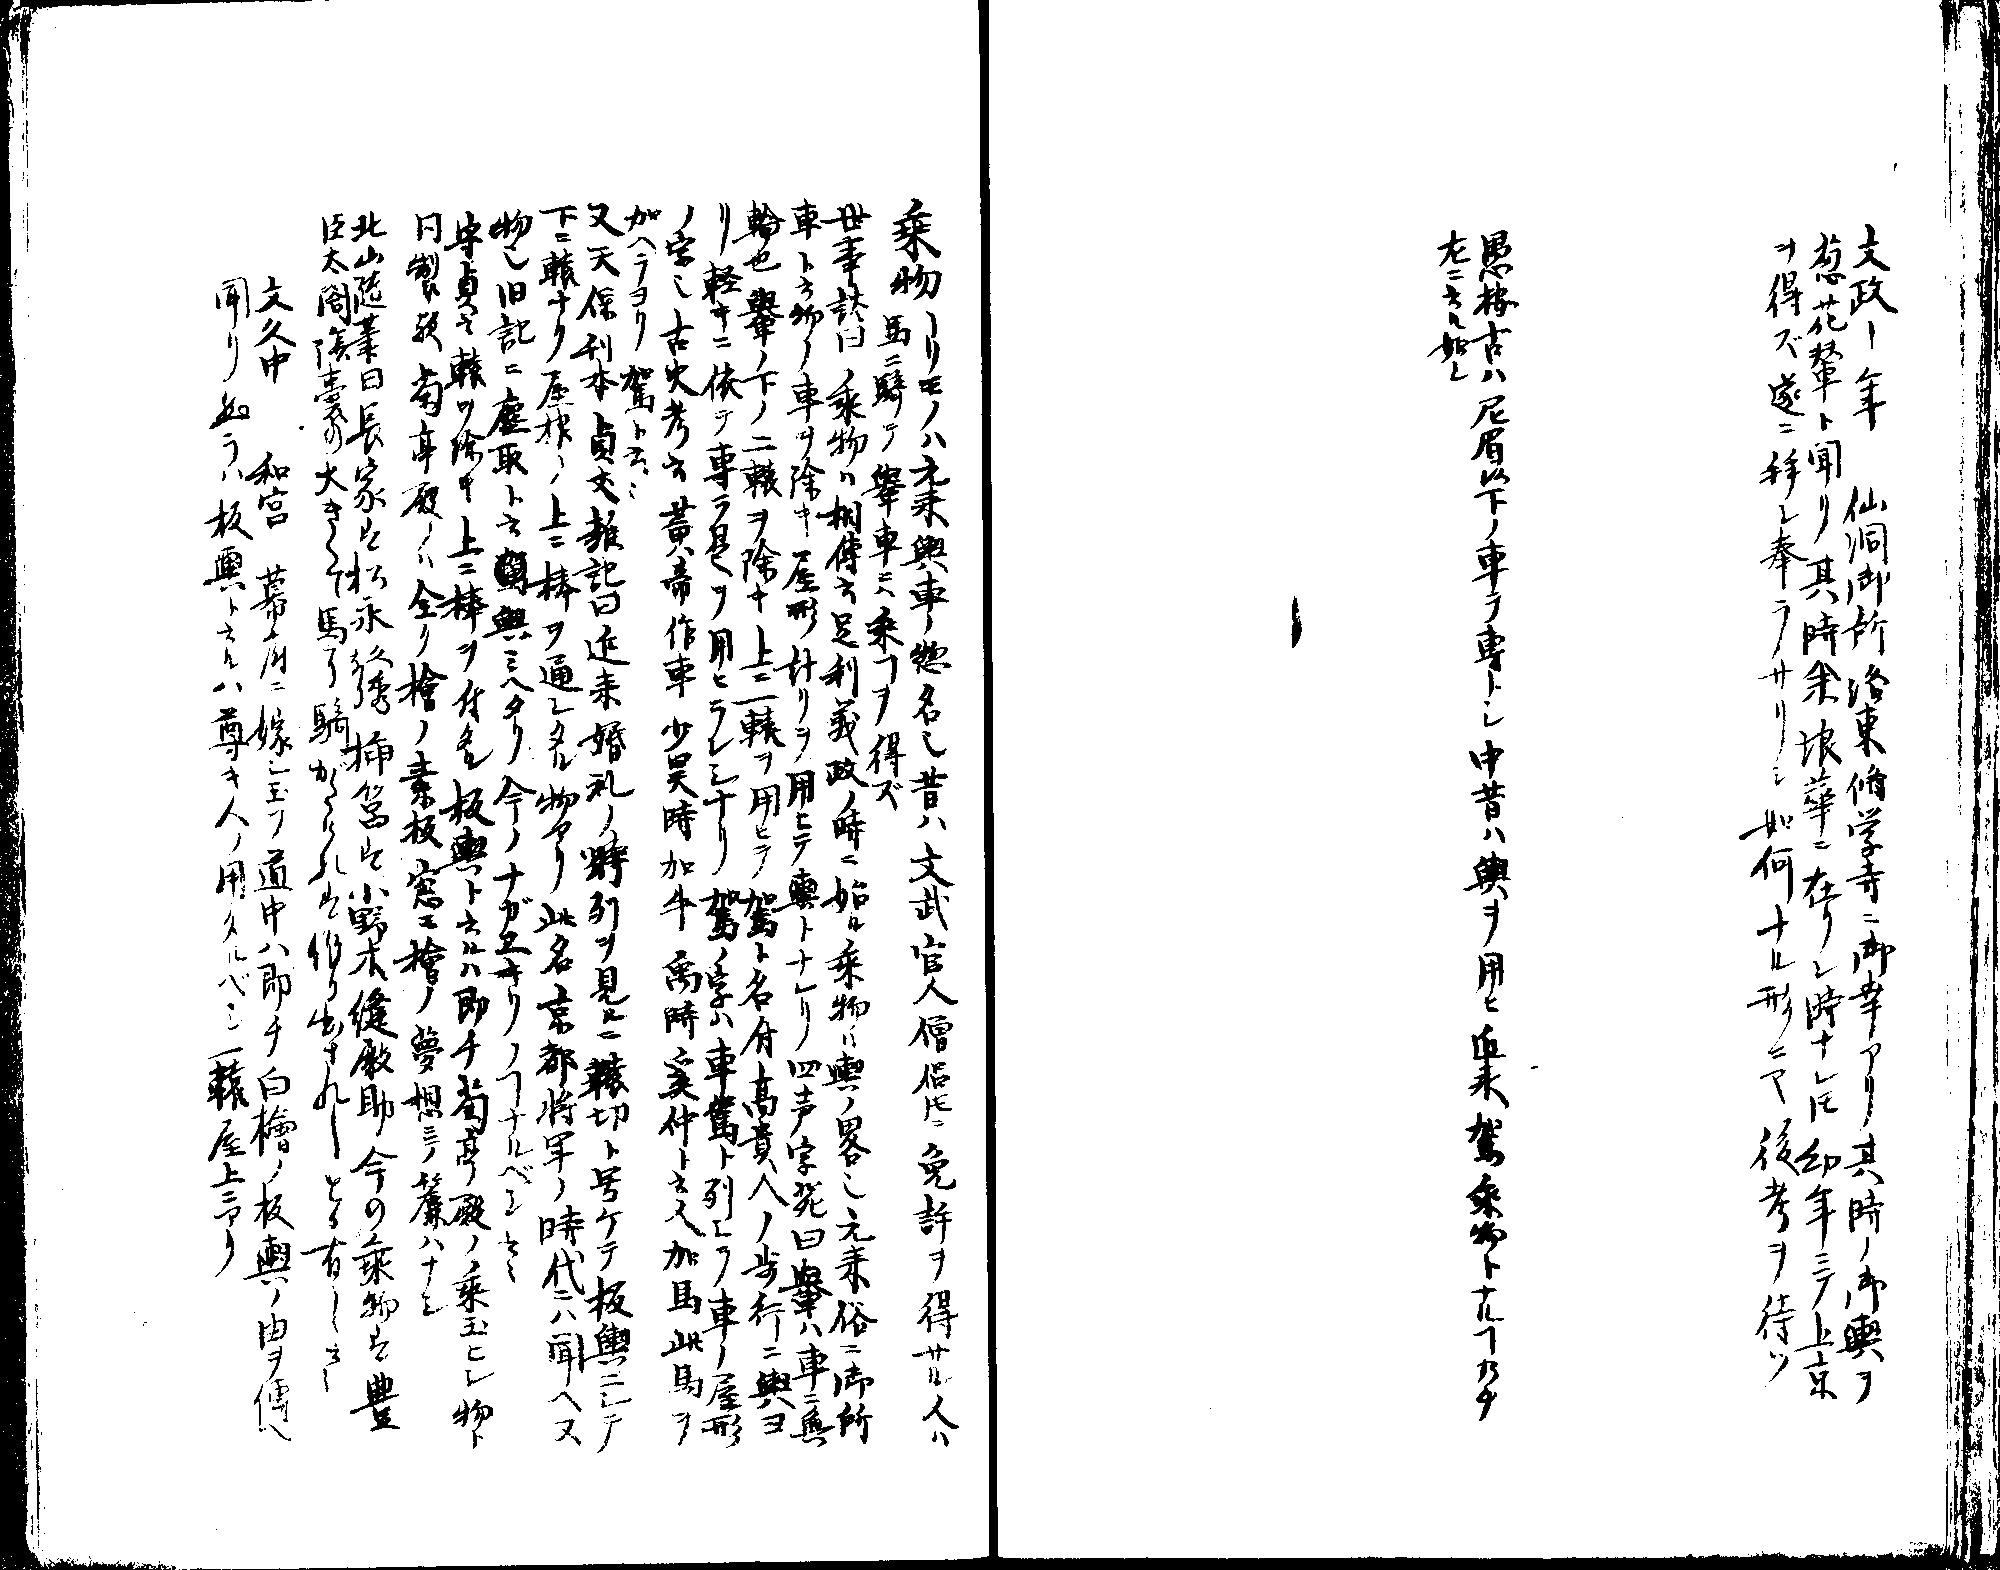 文政ー年　仙洞御所洛東脩学寺ニ御幸アリ其時ノ御輿ヲ
葱花輦ト聞リ其時余浪華ニ在リシ時ナレ𪜈幼年ニテ上京
ヲ得ズ遂ニ拝シ奉ラザリシ如何ナル形ニヤ後考ヲ待ツ
愚按古ハ尼眉以下ノ車ヲ専トシ中昔ハ輿ヲ用ヒ近来駕乗物トナルヿ乃チ
左ニ云ル如シ
乗物ーリモノハ元来輿車ノ惣名也昔ハ文武官人僧侶𪜈ニ免許ヲ得ザル人ハ
馬ニ騎テ輦車ニハ乗ヿヲ得ズ
世事談曰ノ乗物ハ相傳云足利義政ノ時ニ始ル乗物ハ輿ノ畧也元来俗ニ御所
車ト云物ノ車ヲ除キ屋形計リヲ用ヒテ輿トナレリ四声字苑曰輦ハ車ニ無
輪也輦ノ下ノ二轅ヲ除キ上ニ一轅ヲ用ヒテ駕ト名付高貴人ノ歩行ニ輿ヨ
リ軽キニ依テ専ラ是ヲ用ヒラレシナリ駕ノ字ハ車駕ト列シテ車ノ屋形
ノ字也古史考云黄帝作車少昊時加牛禹時奚仲ト云人加馬此馬ヲ
加ヘラヨリ駕ト云々
又天保刊本貞丈雑記曰近来婚礼ノ時列ヲ見ルニ轅切ト号ケテ板輿ニシテ
下ニ轅ナク屋根ノ上ニ棒ヲ通シタル物アリ此名京都将軍ノ時代ニハ聞ヘヌ
物也旧記ニ塵取ト云輿ミヘタリ今ノナガエキリノヿナルベシ云々
守貞云轅ヲ除キ上ニ棒ヲ付ル板輿ト云ルハ即チ菊亭殿ノ乗玉ヒシ物ト
同製歟菊亭殿ノハ全ク檜ノ素板窓モ檜ノ夢想ニテ簾ハナシ
北山随筆曰長家は松永久秀挿箱は小野木縫殿助今の乗物は豊
臣太閤陰嚢の大きくて馬に騎がたけれは作り出されしとそ有し云々
文久中　和宮　幕府ニ嫁シ玉フ道中ハ即チ白檜ノ板輿ノ由ヲ傳ヘ
聞リ　然ラハ板輿ト云ルハ尊キ人ノ用タルベシ一轅屋上ニアリ